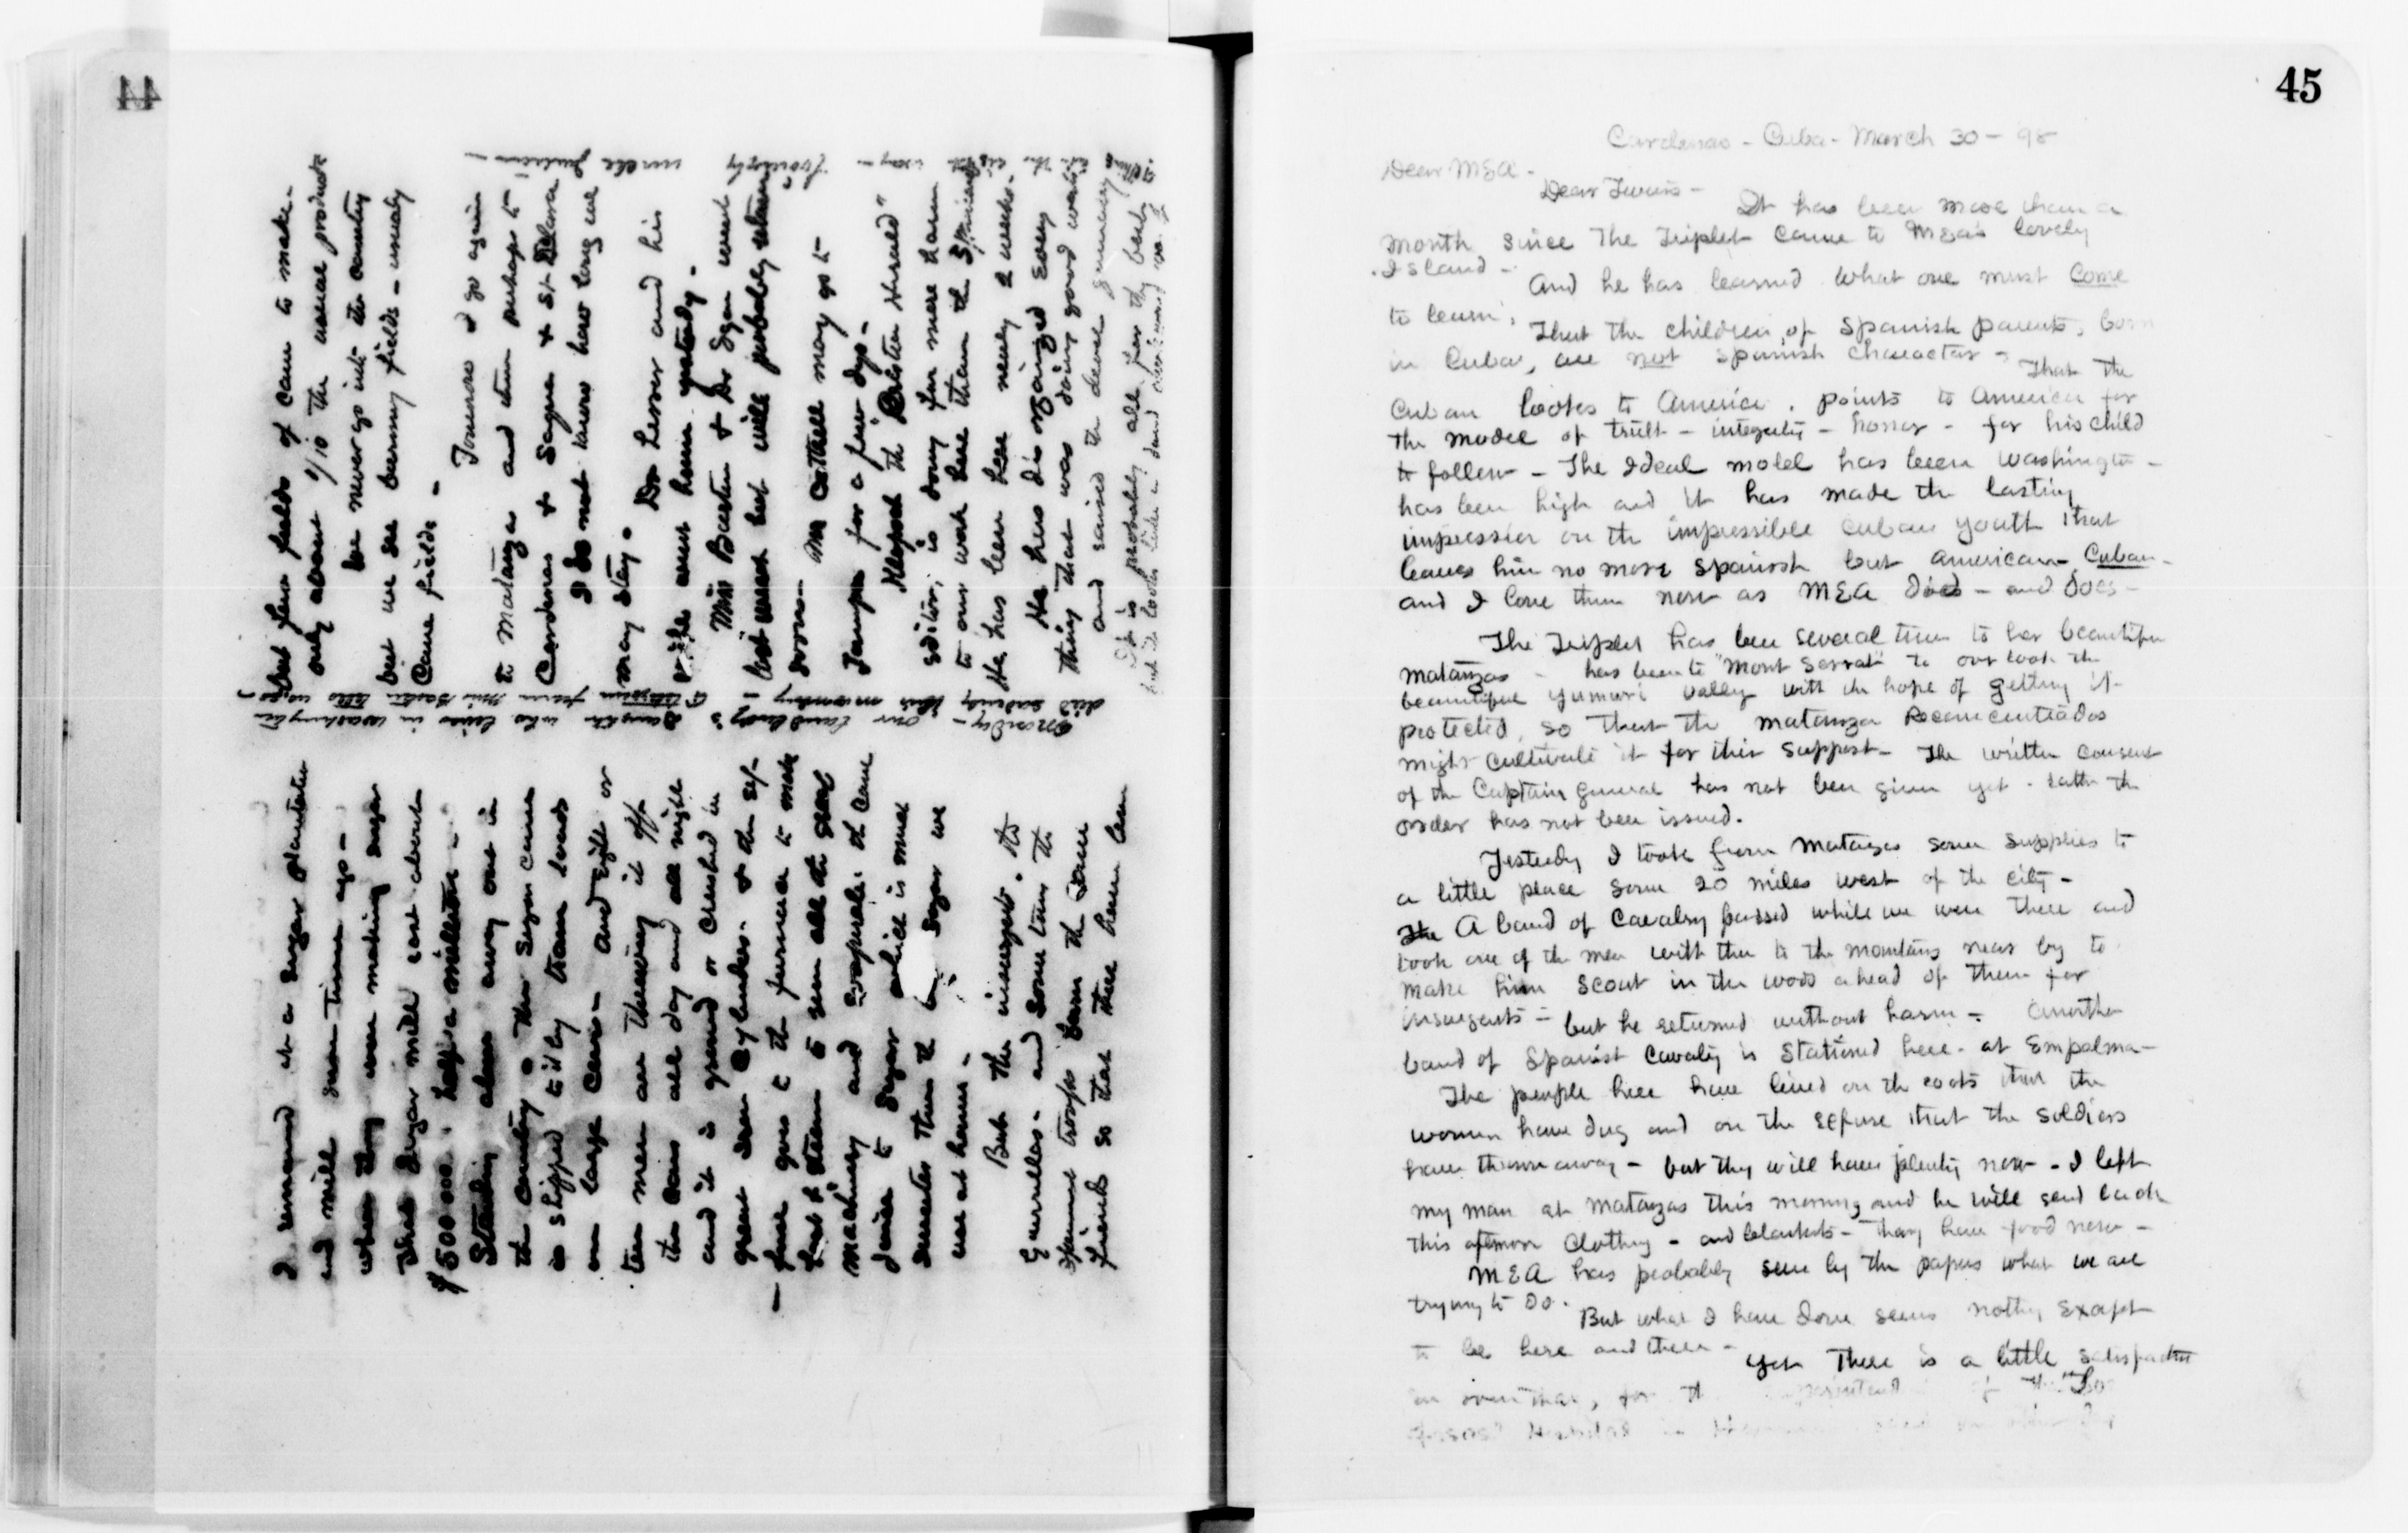 44
I remained at a sugar plantation
and mill some time ago -
when they were making sugar
This sugar mill cost about
$500 000. half a million -
Standing alone away out in
the country - The sugar cane
is shipped to it by train loads
on large cars - and eight or
ten men are throwing it off
the cars all day and all night
and it is ground or crushed in
great iron cylinders - & the ref-
use goes to the furnace to make
heat & steam to run all the great
machinery and evaporate the cane
juice to sugar which is much
sweeter than the sugar we
use at home -
But the insurgents - the
Guerrillas - and some times the
Spanish troops burn the cane
fields so that there have been
but few fields of cane to make
only about 1/10 the usual product
We never go into the country
but we see burning fields - usually
Cane fields -
Tomorrow I go again
to Matanzas and then perhaps to
Cardenas & Sagua &
I do not know how long we
may stay -
Dr Lesser and his
wife went home yesterday -
Miss Barton & Dr Egan went
but will probably return
soon - Mr Cottrell may go to
Tampa for a few days -
Klopsch the Christian Herald"
editor, is doing far more harm
to our work here than the Spaniards
He has been here nearly 2 weeks -
He has disorganized every
thing that was doing good work
and raised the devil generally
It is probably all for the best
45
Cardenas - Cuba - March 30 - 98
Dear MEA -
Dear Twins - It has been more than a
month since The Triplet came to MEA's lovely
Island -
And he has learned what one must come
to learn,
That the children, of Spanish parents, born
in Cuba, are not Spanish character - That the
Cuban looks to America, points to America for
the model of truth - integrity - honor - for his child
to follow - The Ideal model has been Washington -
has been high and it has made the lasting
impression on the impressible Cuban youth that
leaves him no more Spanish but American - Cuban -
and I love them now as MEA did - and does -
The Triplet has been several times to her beautiful
Matanzas - has been to "Mont Serrat" to over look the
beautiful Yumuri Vally with the hope of getting it
protected, so that the Matanzas Reconcentrados
might cultivate it for their support - The written consent
of the Captain General has not been given yet - rather the
order has not been issued.
Yesterdy I took from Matanzas some supplies to
a little place some 20 miles west of the city -
The A band of Cavalry passed while we were there and
took one of the men with them to the mountains near by to
make him scout in the woods ahead of them for
insurgents - but he returned without harm - Another
band of Spanish Cavalry is stationed here - at Empalma -
The people here have lived on the roots that the
women have dug and on the refuse that the soldiers
have thrown away - but they will have plenty now - I left
my man at Matanzas this morning and he will send back
this afternoon clothing - and blankets - They have food now -
MEA has probably seen by the papers what we are
trying to do.
But what I have done seems nothing except
to be here and there -
Yet there is a little satisfaction
in over that, for the